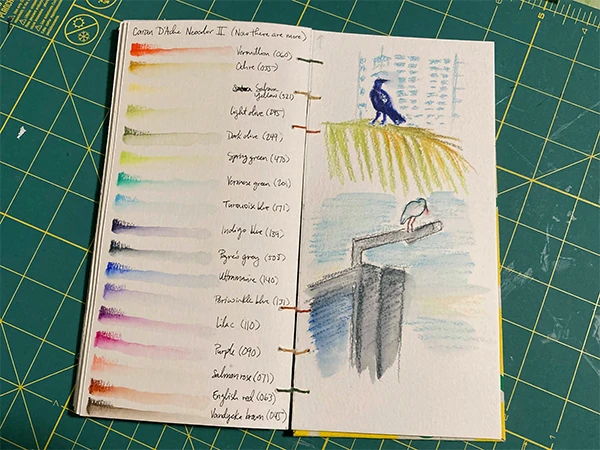 Caran D'Ache Neocolor II (Now there are more)
Vermillion (060)
Ochre (035)
Saharan
yellow (521)
Light olive (245)
Dark olive (249)
Spring green (470)
Veronese green (201)
Turquoise blue (171)
Indigo blue (139)
Payne's grey (508)
Ultramarine (140)
Periwinkle blue (131)
Lilac (110)
Purple (090)
Salmon rose (071)
English red (063)
Vandyke brown (045)